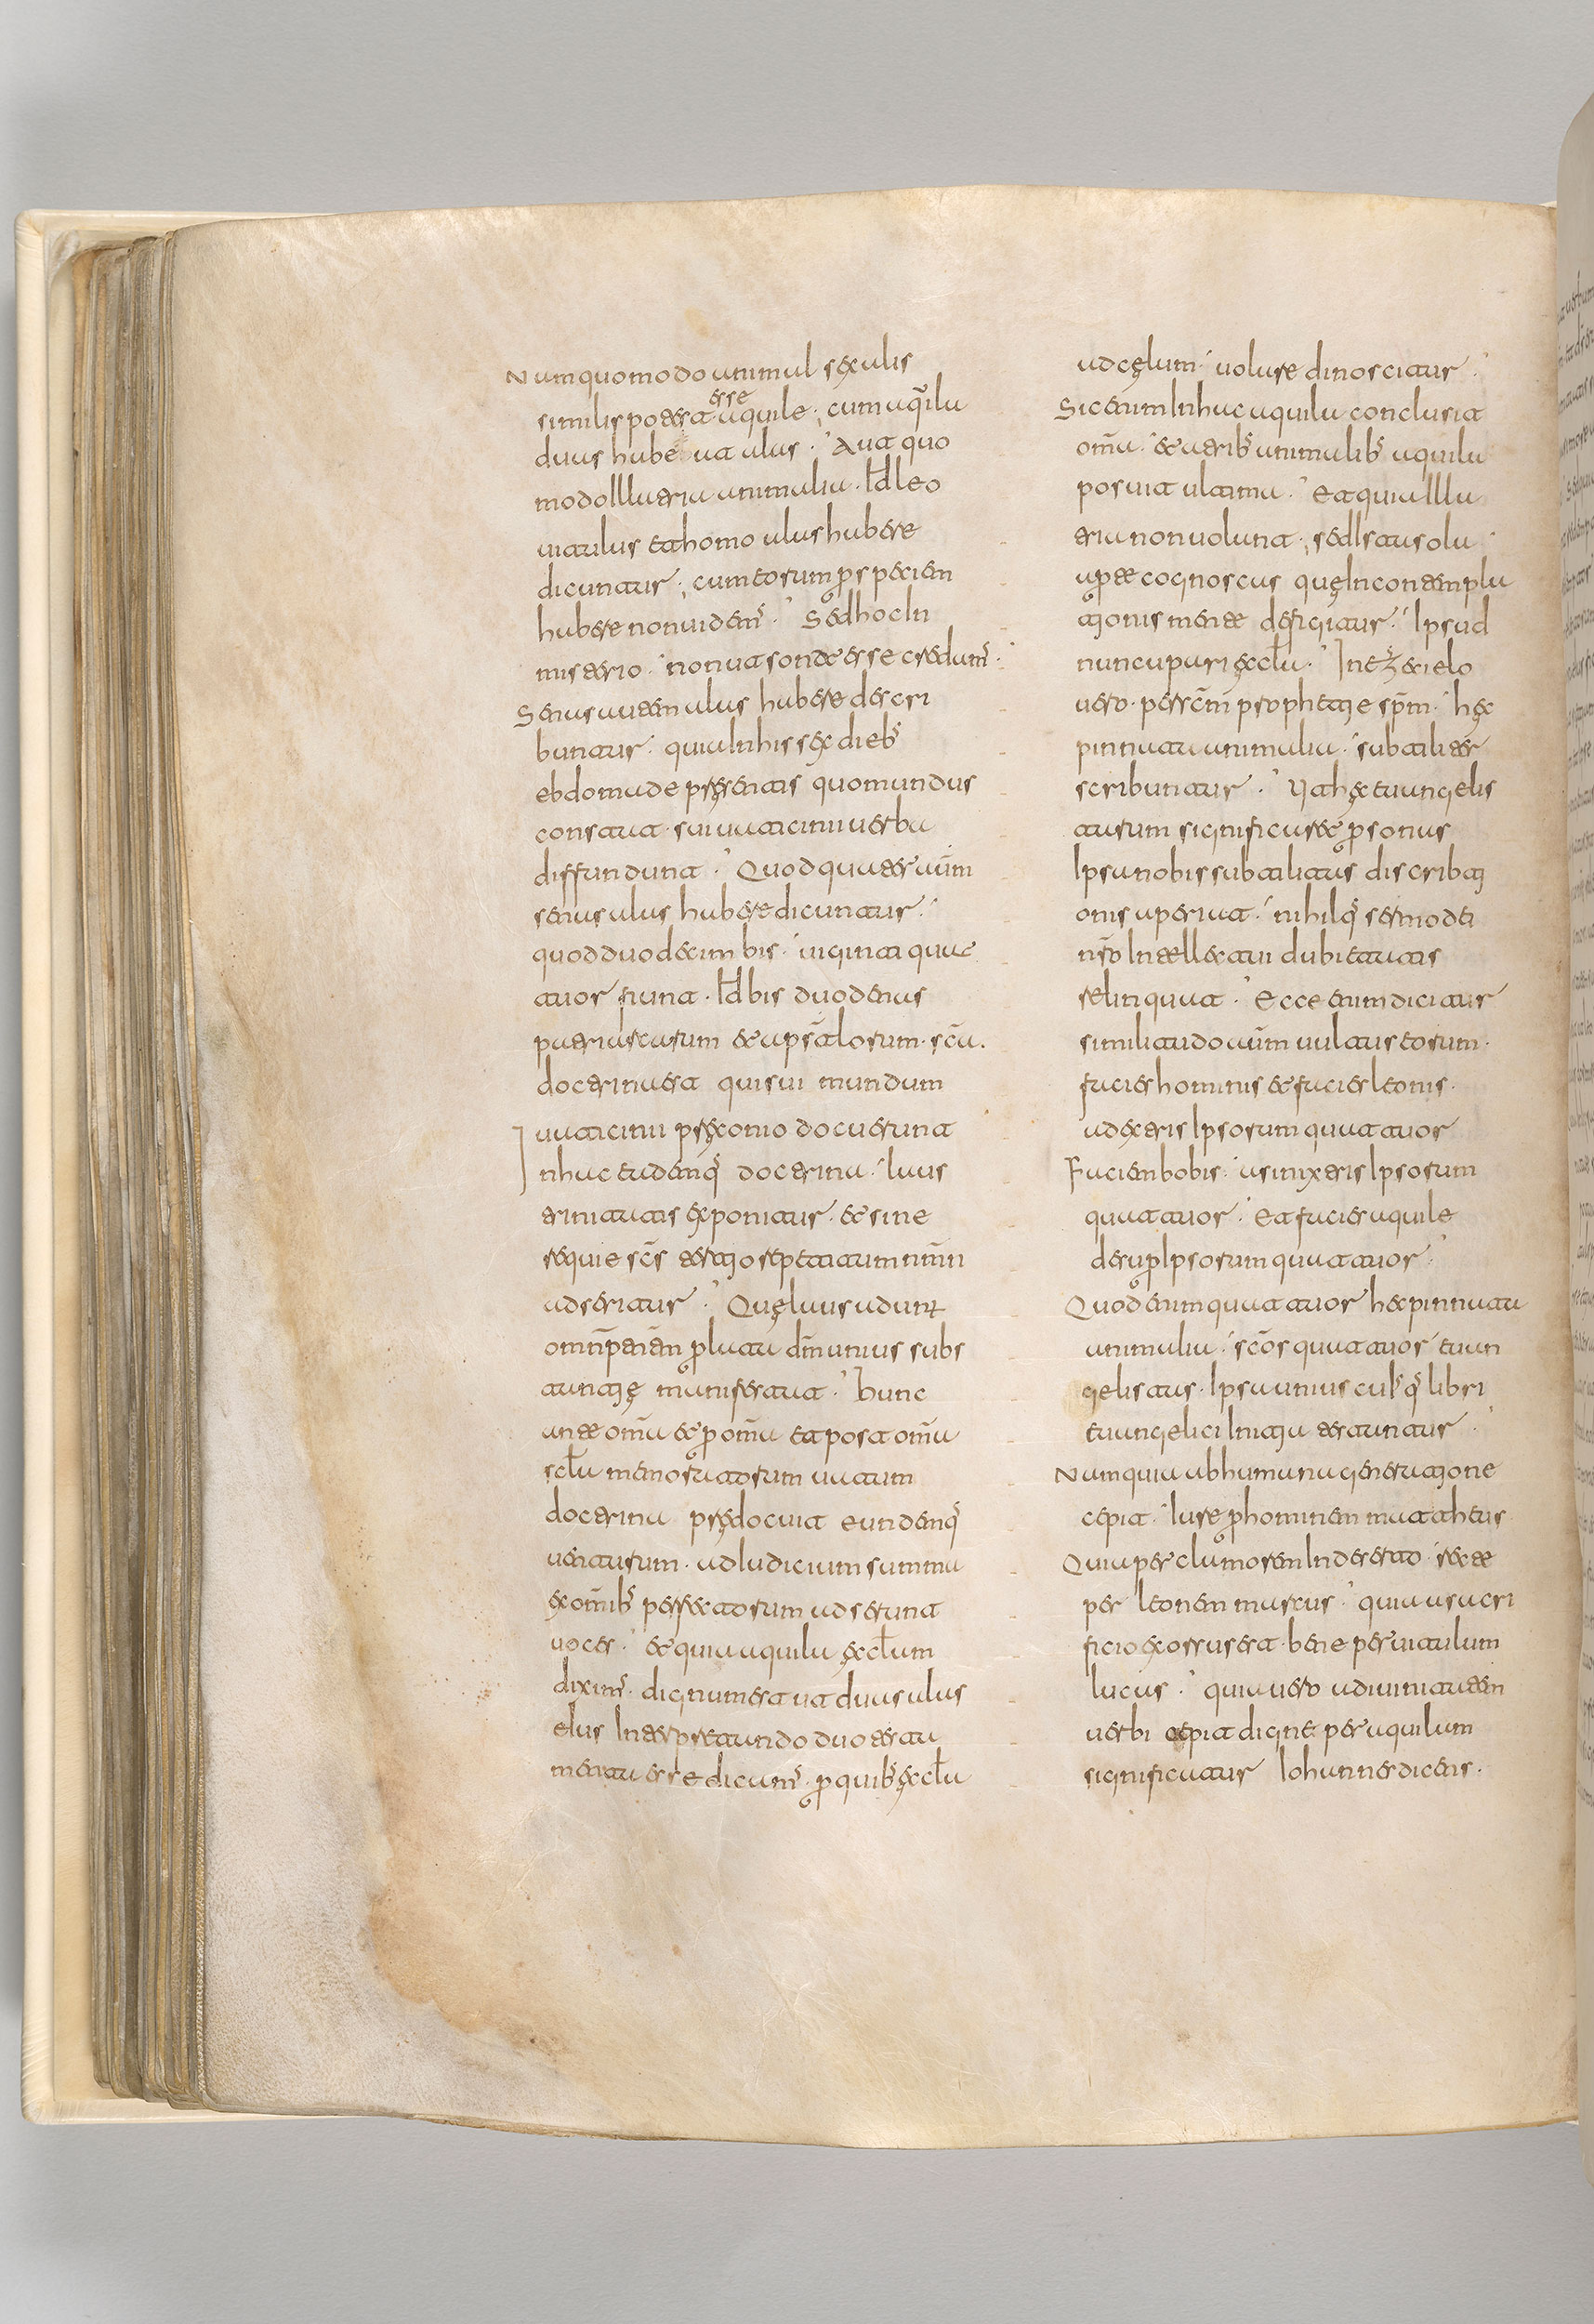 Nam quomodo animal sęx alis
similis potest esse aquile· cum aq̄ila
duas habe ut alas· Aut quo
modo Illa tria animalia· Id leo
uitulus et homo alas habere
dicuntur· cum eorum ꝑ speciem
habere non uidem̄· Sed hoc In
misterio· non ut sonat esse credum̄·
Senas autem alas habere descri
buntur· quia In his sęx dieb̄
ebdomade pręsentis quo mundus
constat· sui uaticinii uerba
diffundunt· Quod quater aūm
senas alas habere dicuntur·
quod duodecim bis· uiginti quat
tuor fiunt· Id bis duodenas
patriarcarum et apsт̄lorum· scā·
doctrina est qui sui mundum
uaticinii pręconio docuerunt
In hac eademq̄ doctrina· laus
trinitatis ęxponitur· et sine
requie sc̄s tertio repetitum nm̄n
adseritur· Quę laus adunat
omn̄ptn̄tm ꝑ lata dm̄nans subs
tantię muniferat· Hunc
ante omn̄a et ꝑ omn̄a et post omn̄a
scl̄a memoratorum uatum
doctrina prędocuit eundemq̄
uenturum· ad Iudicium summa
ęx omn̄ib̄ perfectorum adserunt
uoces· et quia aquila ęccl̄am
dixim̄· dignum est ut duas alas
eius Interpretando duo testa
menta esse dicam̄· ꝑ quib̄ ęccl̄a
ad cęlum· uolare dinoscitur·
Sic enim In hac aquila conclusit
omn̄a· et a trib̄ animalib̄ aquila
posuit ultima· Et quia Illa
tria non uolant· sed Ista sola
aꝑte cognoscas quę In contempla
tionis mente defigitur· Ipsud
nuncupari ęccl̄a· In Ezecielo
uero· per sc̄m prophetie sp̄m· hęc
pinnata animalia· subtiliter
scribuntur· Ut hęc euangelis
tarum significaret ꝑsonas
Ipsa nobis subtilitas discribti
onis aperiat· nihilq̄ sermo dei
nr̄o Intellectui dubietatis
relinquat· Ecce enim dicitur
similitudo aūm uultus eorum·
facies hominis et facies leonis·
a dęxteris Ipsorum quattuor
Faciem bobis· a sinixtris Ipsorum
quattuor· et facies aquile
desuꝑ Ipsorum quattuor·
Quod enim quattuor hec pinnata
animalia· sc̄os quattuor euan
gelistas· Ipsa unius cuIq̄ libri
euangelici Initia testantur·
Nam quia ab humana generatione
cepit· Iure ꝑ hominem mattheus
Quia per clamorem In deserto· recte
per leonem marcus· quia a sacri
ficio ęxorsus est· bene per uitulum
lucas· quia uero a diuinitatem
uerbi cepit digne per aquilam
significatur Iohannes dicens·